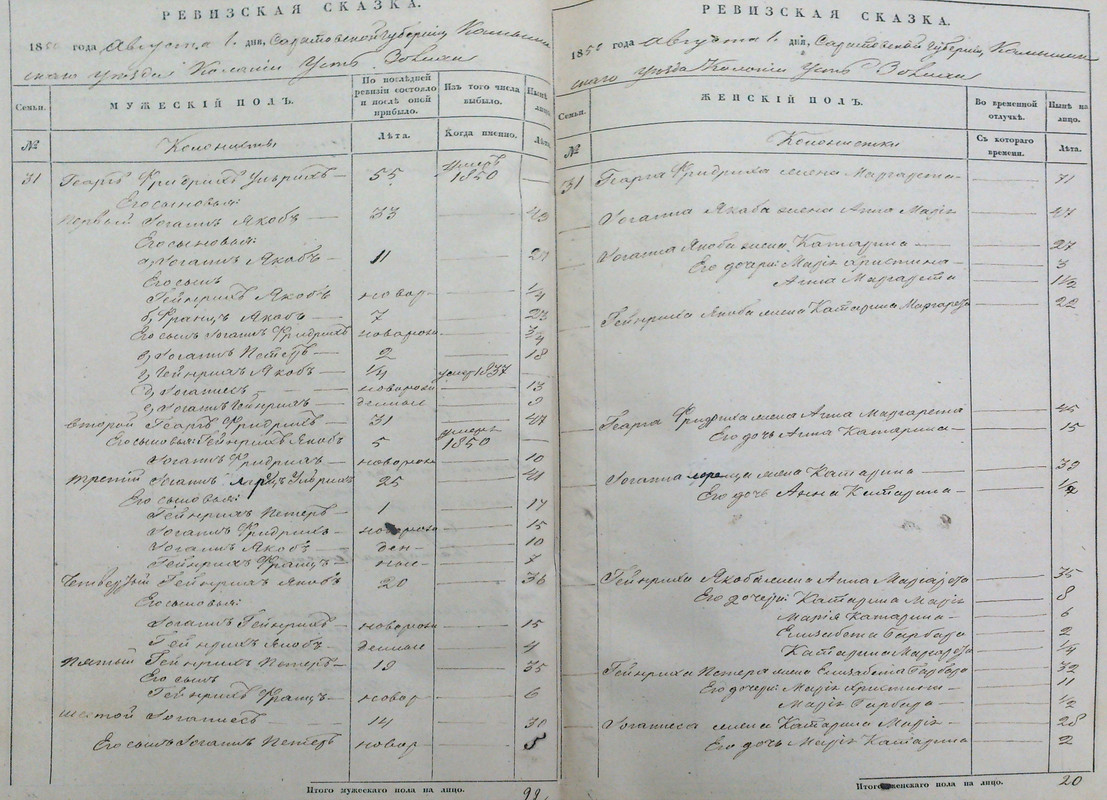 РЕВИЗСКАЯ СКАЗКА.
1850 года Августа 1 дня, Саратовской Губерніи Камышин
скаго уезда Колоніи Усть Золихи
Семьи. МУЖЕСКІЙ ПОЛЪ. По последней ревизіи состояло и после оной прибыло. Изъ того числа выбыло. Ныне на лицо.
№ Колонисты Лѣта. Когда именно. Лѣта.
31 Георгъ Фридрихъ Ульрихъ 55 умеръ 1850
Его сыновья:
первый Іоганъ Якобъ 33 49
Его сыновья:
а, Іоганъ Якобъ 11 27
Его сынъ
Гейнрихъ Якобъ новор 1/4
б, Францъ Якобъ 7 23
Его сынъ Іоганъ Фридрихъ новорожд 3/4
в, Іоганъ Петеръ 2 18
г, Гейнрихъ Якобъ 1/4 умер 1837
д, Іоганесъ новорожд 13
е, Іоганъ Гейнрихъ денные 9
второй Георгъ Фридрихъ 31 47
Его сыновья: Гейнрихъ Якобъ 5 умеръ 1850
Іоганъ Фридрихъ новорож 10
третій Іоганъ Ульрихъ 25 41
Его сыновья:
Гейнрихъ Петеръ 1 17
Іоганъ Фридрихъ новорож 15
Іоганъ Якобъ ден 10
Гейнрихъ Францъ ные 7
Четвертый Гейнрихъ Якобъ 20 36
Его сыновья:
Іоганъ Гейнрихъ новорож 15
Гейнрихъ Якобъ денные 4
Пятый Гейнрихъ Петеръ 19 35
Его сынъ
Гейнрихъ Францъ новор 6
шестой Іоганесъ 14 30
Его сынъ Іоганъ Петеръ новор
Итого мужескаго пола на лицо. 22
РЕВИЗСКАЯ СКАЗКА.
1850 года Августа 1 дня, Саратовской Губерніи Камышин
скаго уезда Колоніи Усть Золихи
Семьи. ЖЕНСКІЙ ПОЛЪ. Во временной отлучкѣ. Нынѣ на лицо.
№ Колонистки Съ котораго времени. Лѣта.
31 Георга Фридриха жена Маргарета 71
Іоганна Якоба жена Анна Марія 47
Іоганна Якоба жена Катарина 27
Его дочери: Марія Христина 3
Анна Маргарета 1 1/2
Гейнриха Якоба жена Катарина Маргарета 22
Георга Фридриха жена Анна Маргарета 45
Его дочь Анна Катарина 15
Іоганна жена Катарина 39
Его дочь Анна Катарина
Гейнриха Якоба жена Анна Маргарета 35
Его дочери: Катарина Марія 8
Марія Катарина 6
Елизабета Барбара 2
Катарина Маргарета 1/4
Гейнриха Петера жена Елизабета Барбара 32
Его дочери: Марія Христина 11
Марія Барбара 1/2
Іоганеса жена Катарина Марія 28
Его дочь Марія Катарина 2
Итого женскаго пола на лицо. 20